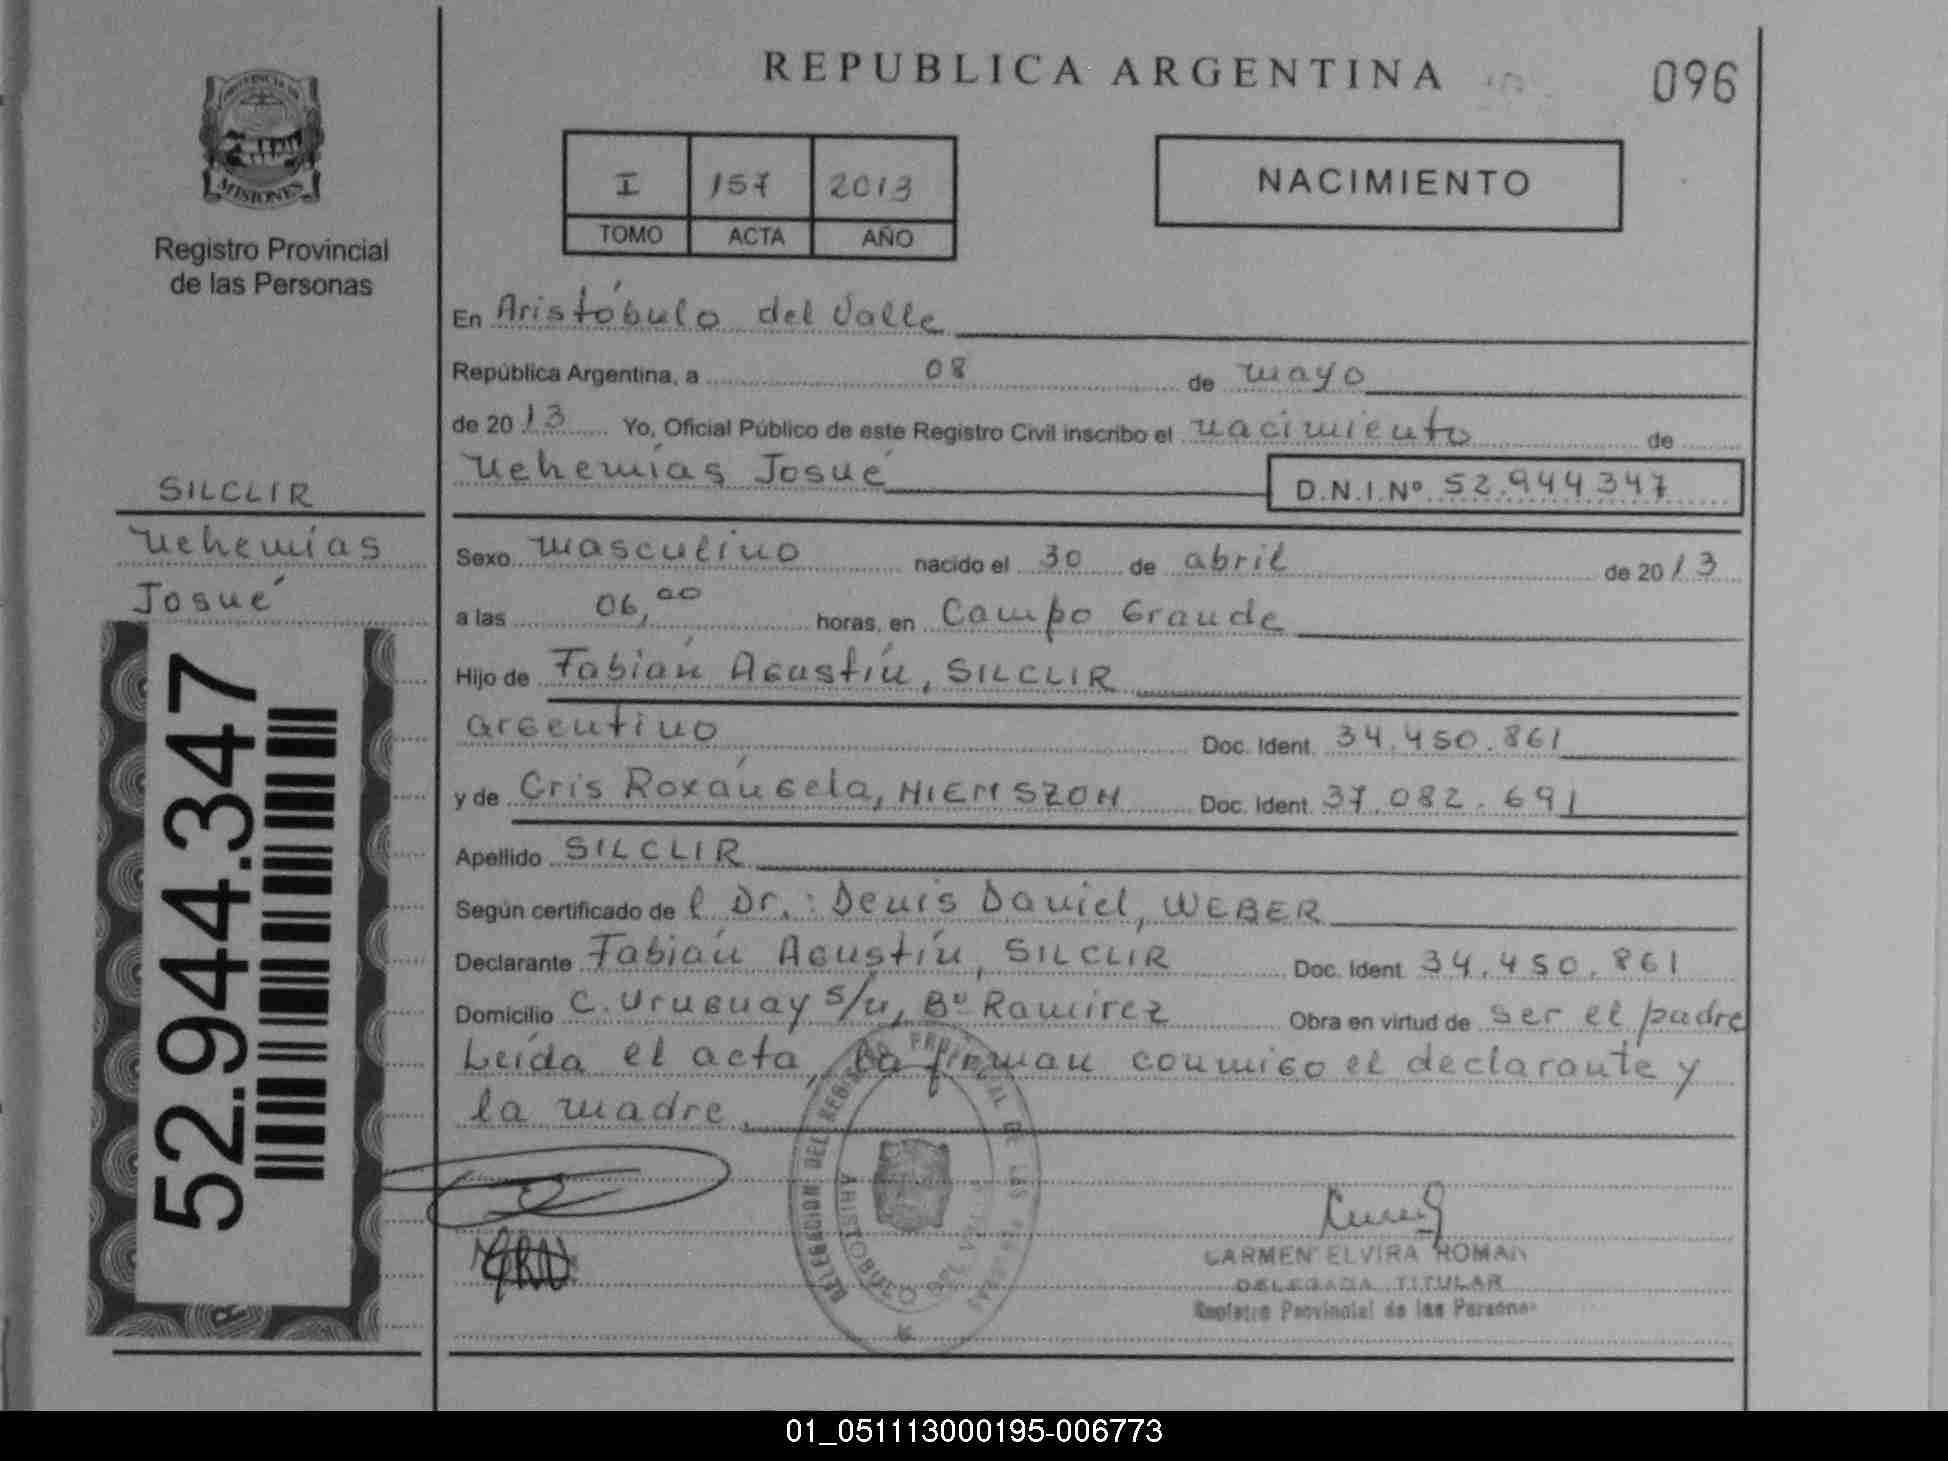 REPUBLICA ARGENTINA
096
PROVINCIA DE
MISIONES
Registro Provincial
de las Personas
I 157 2013
TOMO ACTA AÑO
NACIMIENTO
En Aristóbulo del Valle
República Argentina, a 08 de mayo
de 2013 Yo, Oficial Público de este Registro Civil inscribo el nacimiento de
Nehemías Josué D.N.I.Nº 52.944347
SILCLIR
Nehemías
Josué
52.944.347
Sexo masculino nacido el 30 de abril de 2013
a las 06,00 horas, en Campo Grande
Hijo de Fabián Agustín, SILCLIR
argentino Doc. Ident. 34.450.861
y de Cris Roxángela, NIEMSZON Doc. Ident. 37.082.691
Apellido SILCLIR
Según certificado de l Dr.: Denis Daniel, WEBER
Declarante Fabián Agustín, SILCLIR Doc. Ident. 34.450.861
Domicilio C. Uruguay s/n, Bº Ramírez Obra en virtud de ser el padre
Leída el acta, la firman conmigo el declarante y
la madre
DELEGACION DEL REGISTRO PROVINCIAL DE LAS PERSONAS
ARISTOBULO DEL VALLE
CARMEN ELVIRA ROMAN
DELEGADA TITULAR
Registro Provincial de las Personas
01_051113000195-006773